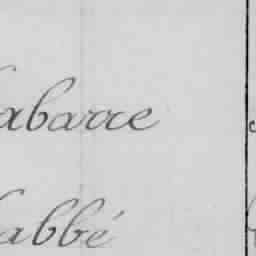 Labarre
Labbé